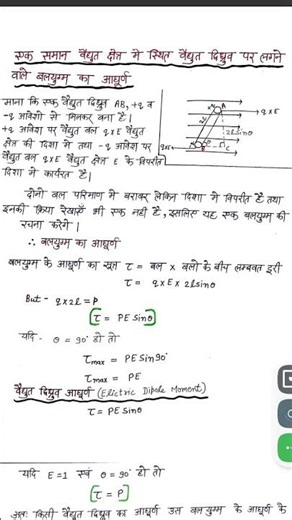 एक समान वैद्युत क्षेत्र में स्थित वैद्युत द्विध्रुव पर लगने
वाले बलयुग्म का आघूर्ण
माना कि एक वैद्युत द्विध्रुव AB, +q व
-q आवेशो से मिलकर बना है।
+q आवेश पर वैद्युत बल qxE वैद्युत
क्षेत्र की दिशा में तथा -q आवेश पर
वैद्युत बल qxE वैद्युत क्षेत्र E के विपरीत
दिशा में कार्यरत है।
A
qxE
2l
2lsinθ
qxE
θ
C
दोनो बल परिमाण में बराबर लेकिन दिशा में विपरीत है तथा
इनकी क्रिया रेखाएँ भी एक नही है, इसलिए यह एक बलयुग्म की
रचना करेगें।
∴ बलयुग्म का आघूर्ण
बलयुग्म के आघूर्ण का सूत्र τ = बल x बलो के बीच लम्बवत दूरी
τ = qxEx2lsinθ
But - qx2l=P
[τ = PESinθ]
यदि - θ = 90° हो तो
τmax = PESin90°
τmax = PE
वैद्युत द्विध्रुव आघूर्ण (Electric Dipole Moment)
τ = PESinθ
यदि E=1 एवं θ = 90° हो तो
[τ = P]
अतः किसी वैद्युत द्विध्रुव का आघूर्ण उस बलयुग्म के आघूर्ण के